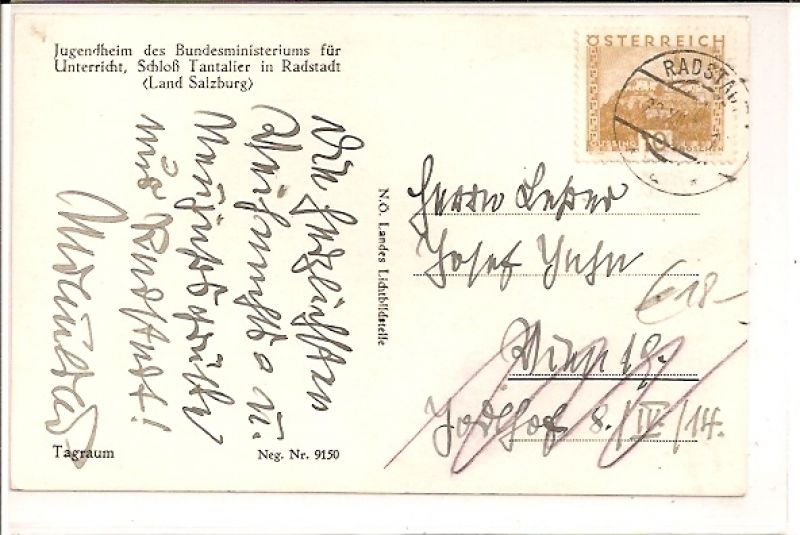 Jugendheim des Bundesministeriums für
Unterricht, Schloß Tantalier in Radstadt
(Land Salzburg)
Die herzlichsten
Weihnachts u.
Neujahrsgrüße
aus Radstadt!
Tagraum
Neg. Nr. 9150
N.Ö. Landes Lichtbildstelle
ÖSTERREICH
10
GROSCHEN
RADSTADT
Herrn Lehrer
Josef Jahn
€ 18-
Wien 19.
8./IV/14.